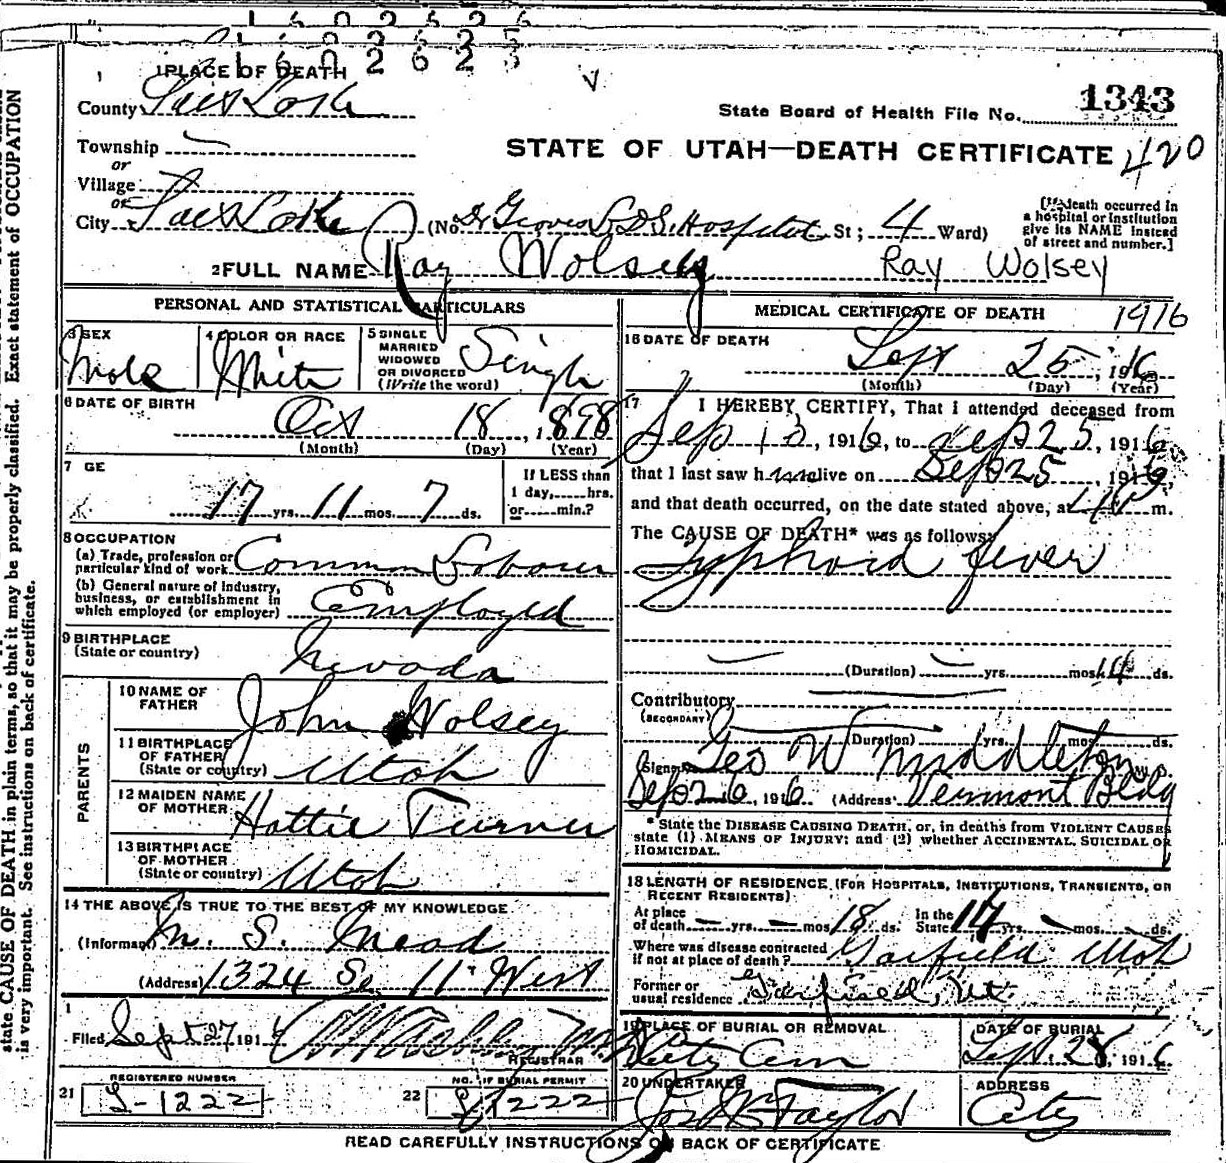 1602625
1 PLACE OF DEATH
County Salt Lake
State Board of Health File No. 1343
Township
STATE OF UTAH—DEATH CERTIFICATE 420
or
Village
or
City Salt Lake (No. Dr Groves L.D.S. Hospital St; 4 Ward)
[If death occurred in
a hospital or institution
give its NAME instead
of street and number.]
2 FULL NAME Ray Wolsey Ray Wolsey
PERSONAL AND STATISTICAL PARTICULARS
3 SEX
Male
4 COLOR OR RACE
White
5 SINGLE
MARRIED
WIDOWED
OR DIVORCED
(Write the word)
Single
6 DATE OF BIRTH
Oct 18, 1898
(Month) (Day) (Year)
7 GE
17 yrs. 11 mos. 7 ds.
If LESS than
1 day, hrs.
or min.?
8 OCCUPATION
(a) Trade, profession or
particular kind of work Common Laborer
(b) General nature of industry,
business, or establishment in
which employed (or employer) Employed
9 BIRTHPLACE
(State or country) Nevada
PARENTS
10 NAME OF
FATHER John Wolsey
11 BIRTHPLACE
OF FATHER
(State or country) Utah
12 MAIDEN NAME
OF MOTHER Hattie Turner
13 BIRTHPLACE
OF MOTHER
(State or country) Utah
14 THE ABOVE IS TRUE TO THE BEST OF MY KNOWLEDGE
(Informant) M. S. Mead
(Address) 1324 So. 11" West
Filed Sept 27 1916
REGISTRAR
REGISTERED NUMBER
21 L-1222
NO. OF BURIAL PERMIT
22 L1222
MEDICAL CERTIFICATE OF DEATH 1916
16 DATE OF DEATH
Sept 25, 1916
(Month) (Day) (Year)
17 I HEREBY CERTIFY, That I attended deceased from
Sep 13, 1916, to Sep 25, 1916
that I last saw him alive on Sep 25 1916,
and that death occurred, on the date stated above, at m.
The CAUSE OF DEATH* was as follows:
Typhoid fever
(Duration) yrs. mos. 14 ds.
Contributory
(SECONDARY)
(Duration) yrs. mos. ds.
(Signed) Geo W Middleton M. D.
Sep 26, 1916 (Address) Vermont Bldg
*State the DISEASE CAUSING DEATH, or, in deaths from VIOLENT CAUSES
state (1) MEANS OF INJURY; and (2) whether ACCIDENTAL, SUICIDAL OR
HOMICIDAL.
18 LENGTH OF RESIDENCE (FOR HOSPITALS, INSTITUTIONS, TRANSIENTS, OR
RECENT RESIDENTS)
At place
of death yrs. mos. 18 ds.
In the
State 14 yrs. mos. ds.
Where was disease contracted
if not at place of death? Garfield Utah
Former or
usual residence Garfield, Ut.
19 PLACE OF BURIAL OR REMOVAL
City Cem
DATE OF BURIAL
Sept. 28, 1916
20 UNDERTAKER
Jos Wm Taylor
ADDRESS
City
READ CAREFULLY INSTRUCTIONS ON BACK OF CERTIFICATE
state CAUSE OF DEATH in plain terms, so that it may be properly classified. Exact statement of OCCUPATION
is very important. See instructions on back of certificate.